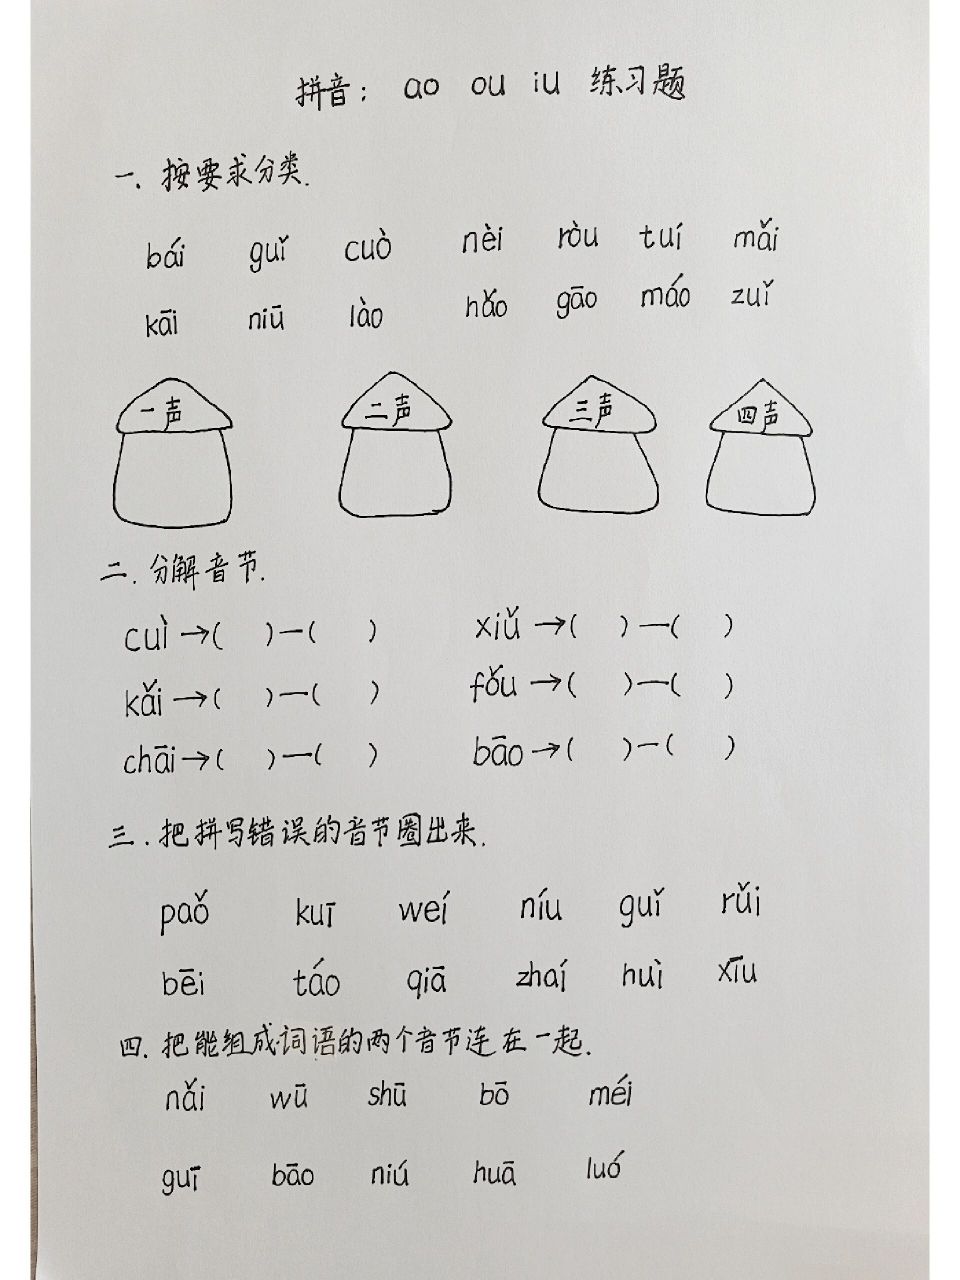 拼音: ao ou iu 练习题
一. 按要求分类.
bái guǐ cuò nèi ròu tuí mǎi
kāi niū lào hǎo gāo máo zuǐ
一声 二声 三声 四声
二. 分解音节.
cuì→( )—( ) xiǔ→( )—( )
kǎi→( )—( ) fǒu→( )—( )
chāi→( )—( ) bāo→( )—( )
三. 把拼写错误的音节圈出来.
paǒ kuī weí níu guǐ rǔi
bēi táo qiā zhaí huì xīu
四. 把能组成词语的两个音节连在一起.
nǎi wū shū bō méi
guī bāo niú huā luó